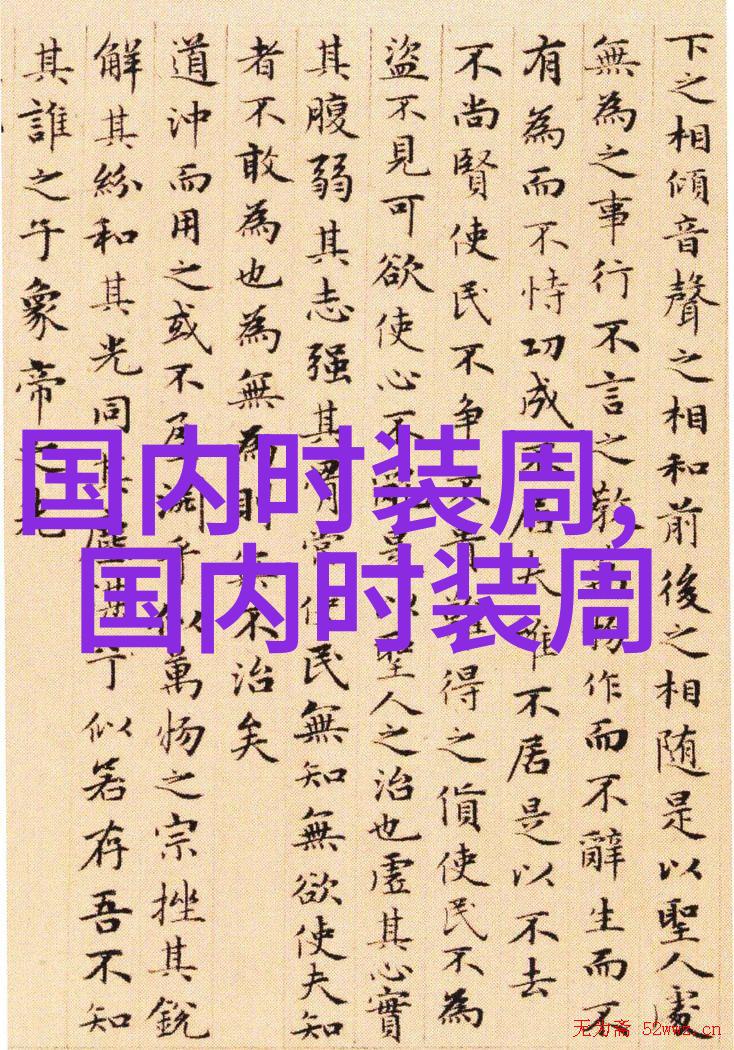 下之相傾音聲之相和前後之相随是以聖人處
無為之事行不言之教萬物作而不辭生而不
有為而不恃功成不居夫唯不居是以不去
不尚賢使民不争不貴難得之貨使民不為
盜不見可欲使心不亂是以聖人之治也虛其心實
其腹弱其志强其骨常使民無知無欲使夫知
者不敢為也為無為則無不治矣
道沖而用之或不盈渊乎似萬物之宗挫其銳
解其紛和其光同其塵湛乎似若存吾不知
其誰之子象帝之先
国内时装周,
国内时装周
无为斋 52wwz.cn